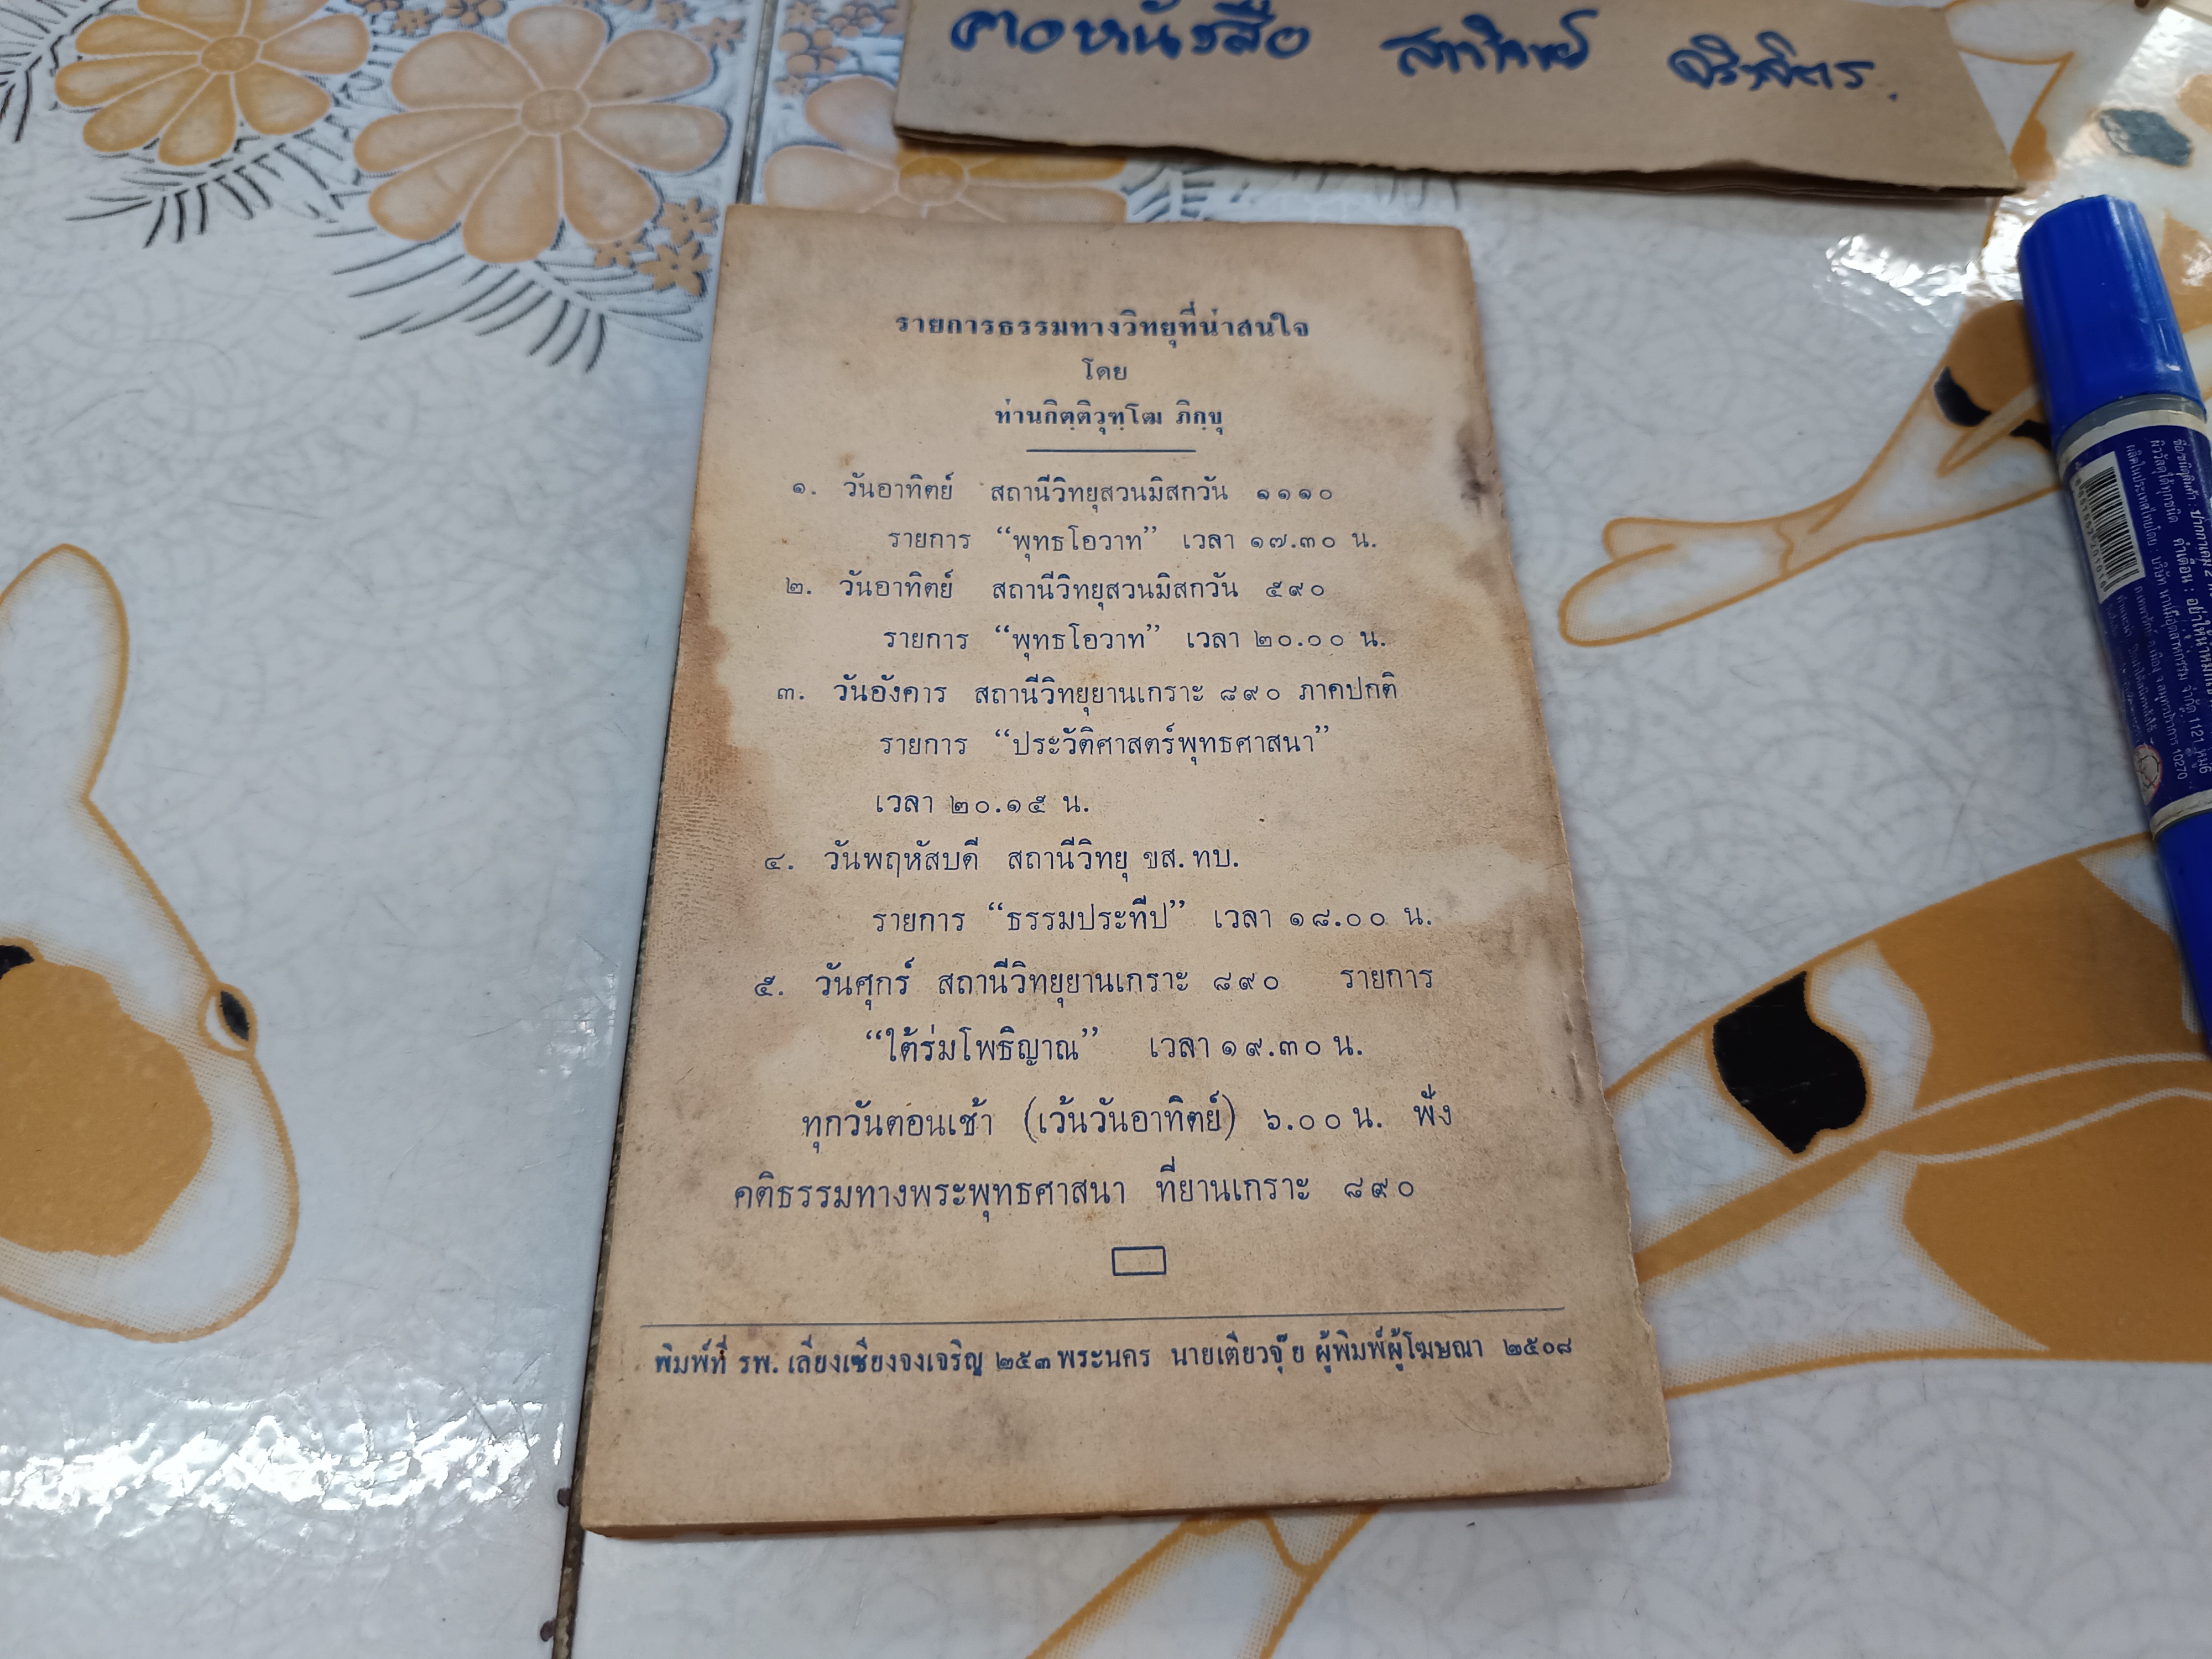 รายการธรรมทางวิทยุที่น่าสนใจ
โดย
ท่านกิตฺติวุฑฺโฒ ภิกฺขุ
๑. วันอาทิตย์ สถานีวิทยุสวนมิสกวัน ๑๑๑๐
รายการ “พุทธโอวาท” เวลา ๑๗.๓๐ น.
๒. วันอาทิตย์ สถานีวิทยุสวนมิสกวัน ๕๙๐
รายการ “พุทธโอวาท” เวลา ๒๐.๐๐ น.
๓. วันอังคาร สถานีวิทยุยานเกราะ ๘๙๐ ภาคปกติ
รายการ “ประวัติศาสตร์พุทธศาสนา”
เวลา ๒๐.๑๕ น.
๔. วันพฤหัสบดี สถานีวิทยุ ขส. ทบ.
รายการ “ธรรมประทีป” เวลา ๑๘.๐๐ น.
๕. วันศุกร์ สถานีวิทยุยานเกราะ ๘๙๐ รายการ
“ใต้ร่มโพธิญาณ” เวลา ๑๙.๓๐ น.
ทุกวันตอนเช้า (เว้นวันอาทิตย์) ๖.๐๐ น. ฟัง
คติธรรมทางพระพุทธศาสนา ที่ยานเกราะ ๘๙๐
พิมพ์ที่ รพ. เลี่ยงเซียงจงเจริญ ๒๕๓ พระนคร นายเตียวจุ๊ย ผู้พิมพ์ผู้โฆษณา ๒๕๐๘